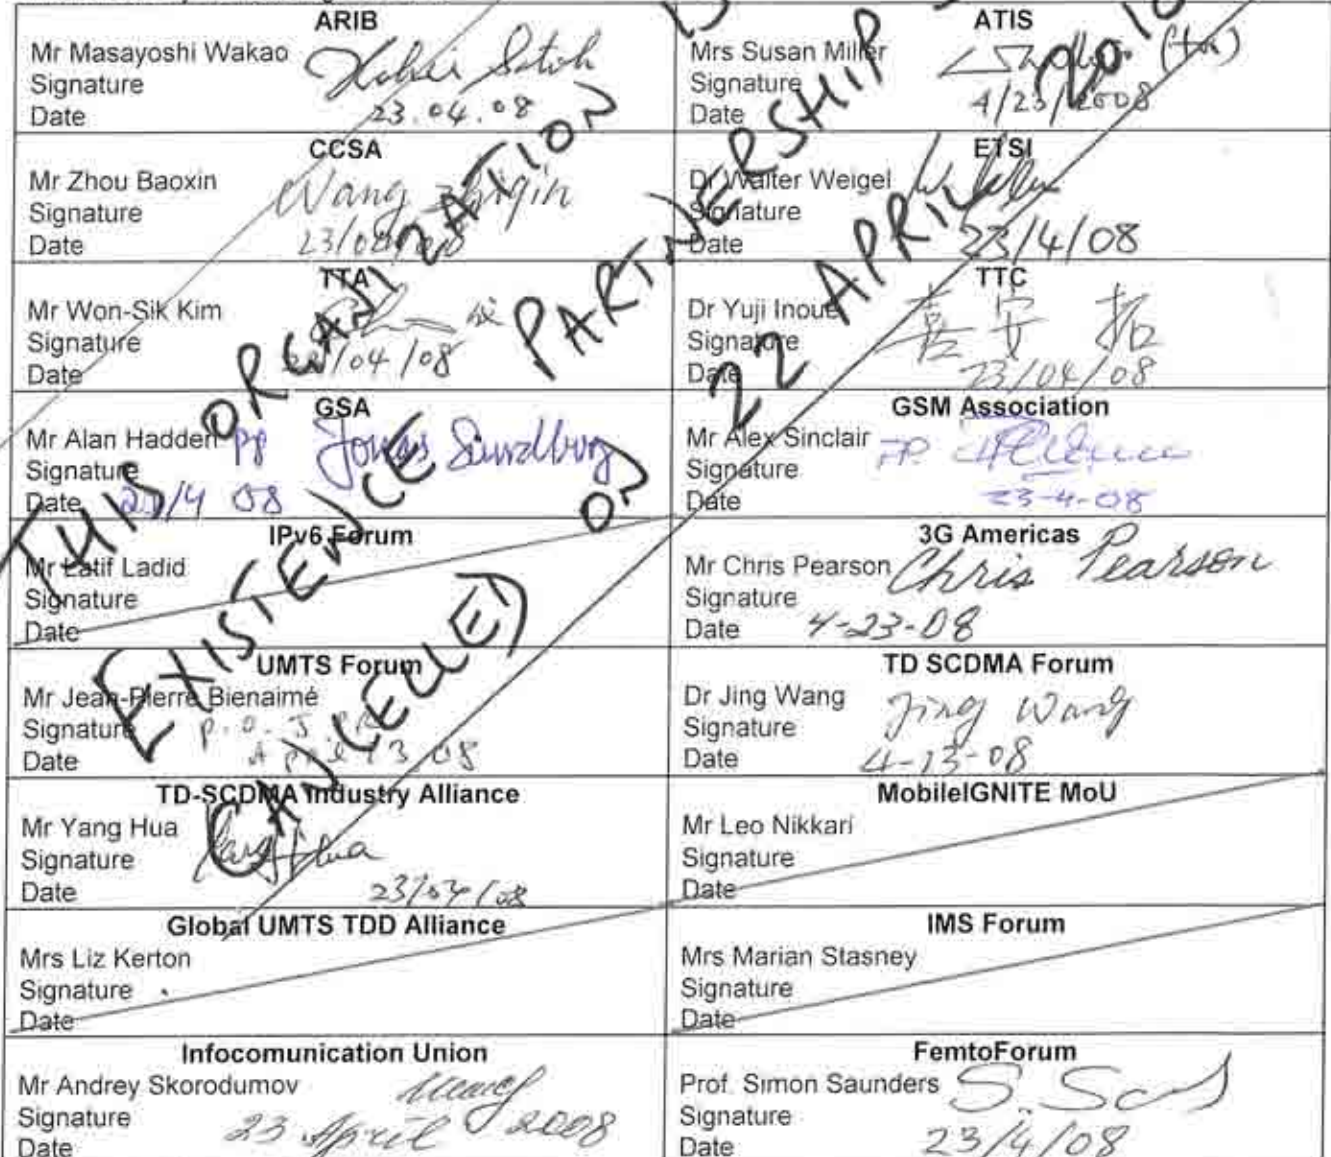 ARIB
Mr Masayoshi Wakao
Signature
Date 23.04.08
ATIS
Mrs Susan Miller
Signature
Date 4/23/2008
CCSA
Mr Zhou Baoxin
Signature Wang Zhiqin
Date
ETSI
Dr Walter Weigel
Signature
Date 23/4/08
TTA
Mr Won-Sik Kim
Signature
Date /04/08
TTC
Dr Yuji Inoue
Signature
Date 23/04/08
GSA
Mr Alan Hadden pp Jonas Sundborg
Signature
Date 23/4 08
GSM Association
Mr Alex Sinclair PP.
Signature
Date 23-4-08
IPv6 Forum
Mr Latif Ladid
Signature
Date
3G Americas
Mr Chris Pearson Chris Pearson
Signature
Date 4-23-08
UMTS Forum
Mr Jean-Pierre Bienaimé
Signature p.o. J.
Date April 08
TD SCDMA Forum
Dr Jing Wang Jing Wang
Signature
Date 4-13-08
TD-SCDMA Industry Alliance
Mr Yang Hua
Signature Yang Hua
Date 23/04/08
MobileIGNITE MoU
Mr Leo Nikkari
Signature
Date
Global UMTS TDD Alliance
Mrs Liz Kerton
Signature
Date
IMS Forum
Mrs Marian Stasney
Signature
Date
Infocomunication Union
Mr Andrey Skorodumov
Signature
Date 23 April 2008
FemtoForum
Prof. Simon Saunders
Signature
Date 23/4/08
THIS ORGANIZATION
PARTNERSHIP
EXISTENCE
CANCELLED ON 22 APRIL 2010